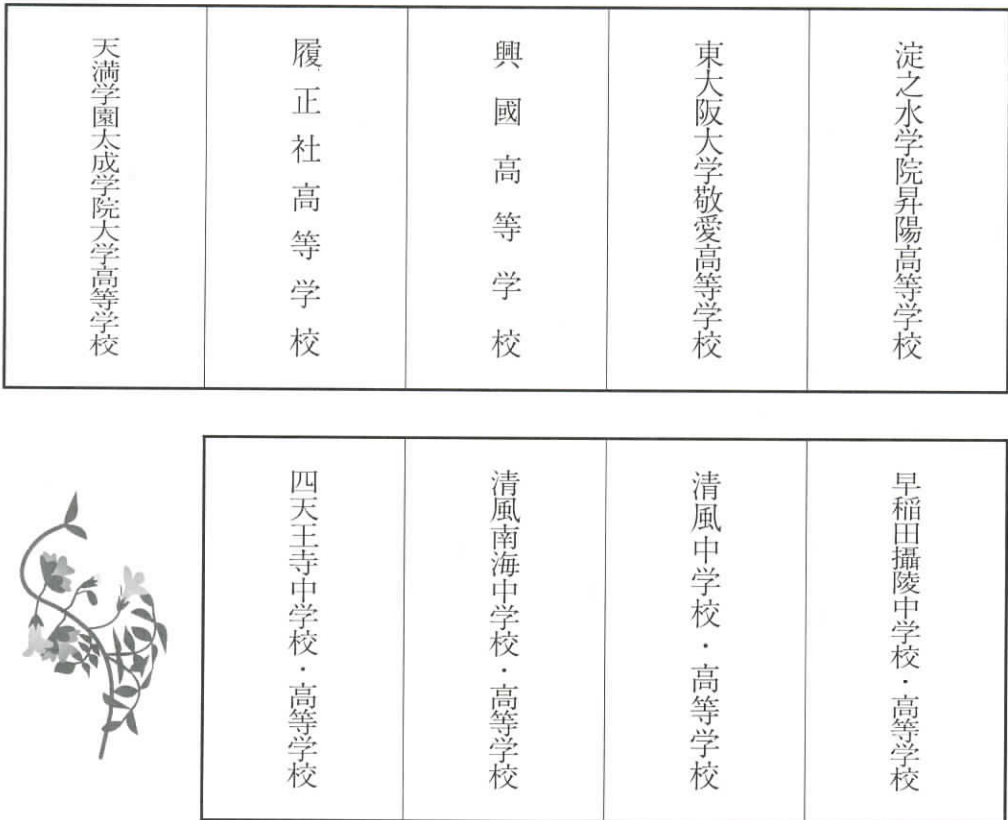 淀之水学院昇陽高等学校
東大阪大学敬愛高等学校
興國高等学校
履正社高等学校
天満学園太成学院大学高等学校
早稲田攝陵中学校・高等学校
清風中学校・高等学校
清風南海中学校・高等学校
四天王寺中学校・高等学校